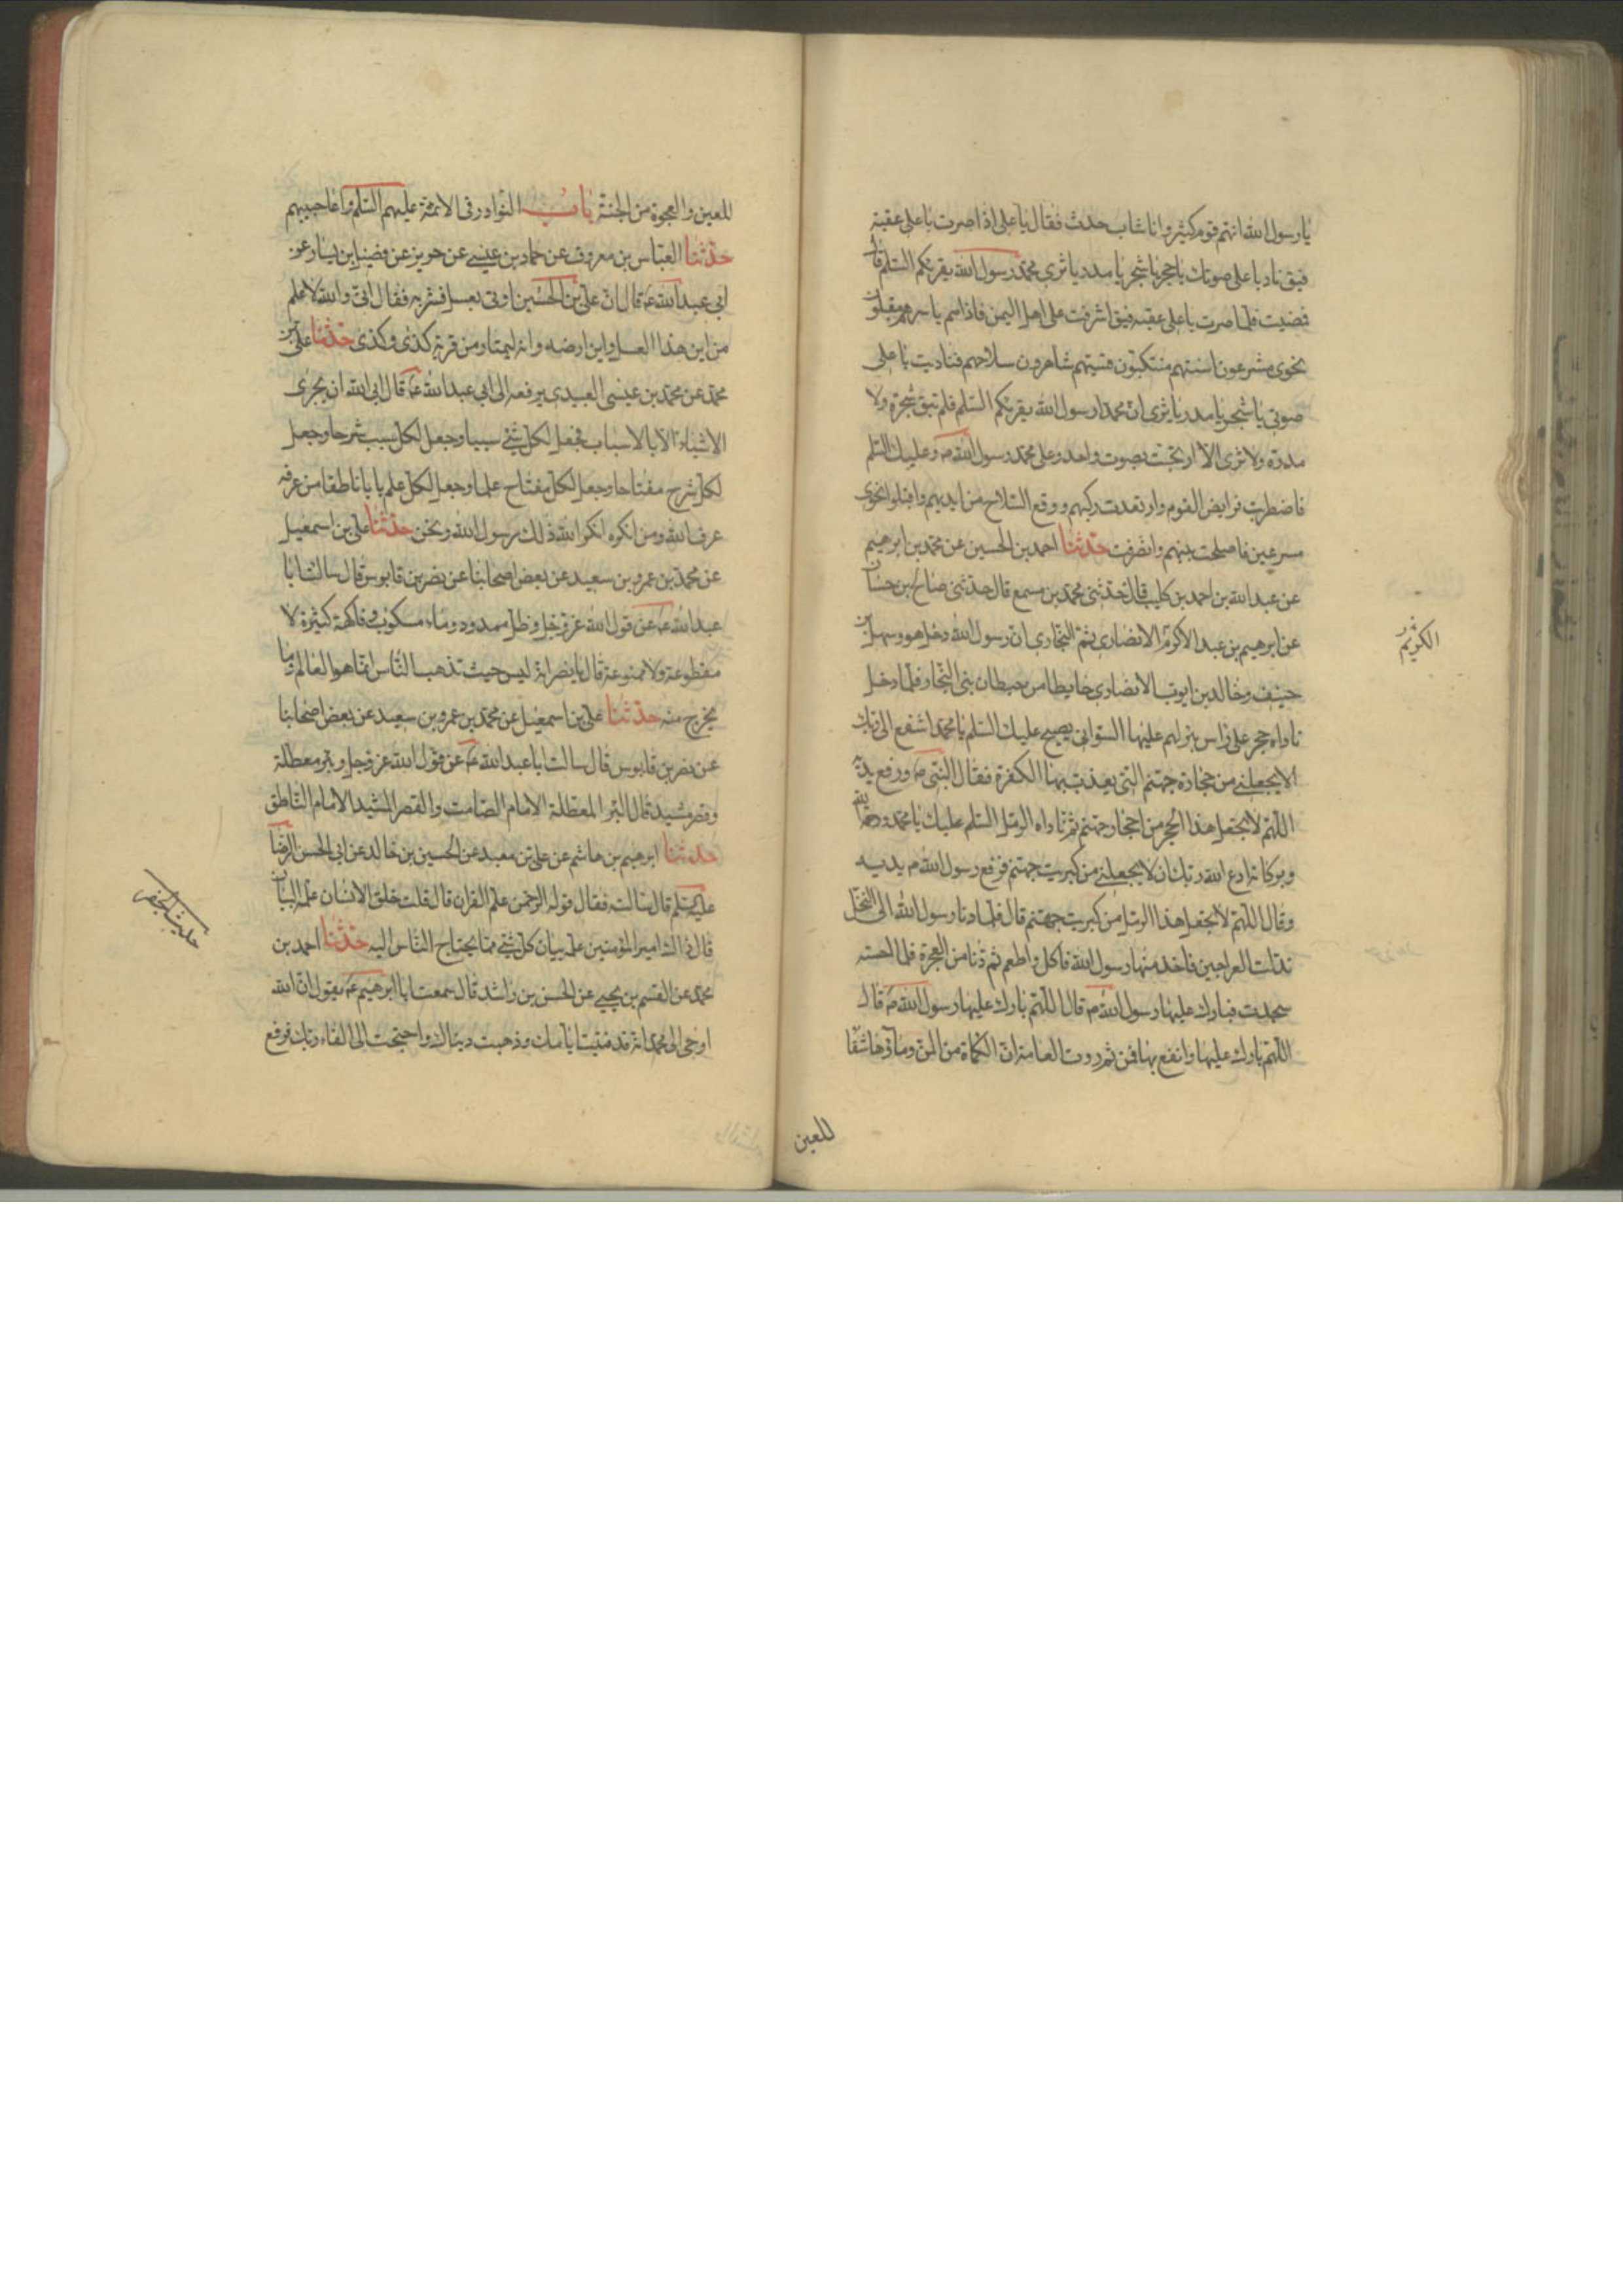 يا رسول الله انهم قوم كثير وانا شاب حدث فقال يا على اذا صرت با على عقبة
فيق فناد با على صوتك يا حجر يا شجر يا مدر يا ثرى محمد رسول الله يقرئكم السلم قال
فضيت فلما صرت با على عقبه فيق اشرفت على اهل اليمن فاذا هم باسرهم مقبلون
نحوى مشرعون اسنتهم متنكبون قسيهم شاهرون سلاحهم فناديت با على
صوتى يا شجر يا مدر يا ثرى ان محمدا رسول الله يقرئكم السلم فلم تبق شجرة ولا
مدرة ولا ثرى الا ارتجت بصوت واحد وعلى محمد رسول الله ص وعليك السلم
فاضطربت فرايض القوم وارتعدت ركبهم ووقع السلاح من ايديهم واقبلوا نحوى
مسرعين فاصلحت بينهم وانصرفت حدثنا احمد بن الحسين عن محمد بن ابرهيم
عن عبد الله بن احمد بن كليب قال حدثنى محمد بن مسمع قال حدثنى صالح بن حسان
عن ابرهيم بن عبد الاكرم الانصارى ثم النجارى ان رسول الله دخل هو وسهل بن
الكريم
حنيف وخالد بن ايوب الانصارى حايطا من حيطان بنى النجار فلما دخل
ناداه حجر على راس بئر لهم عليها السوانى يصيح عليك السلم يا محمد اشفع الى ربك
الا يجعلنى من حجارة جهنم التى يعذب بها الكفرة فقال النبى ص ورفع يديه
اللهم لا تجعل هذا الحجر من احجار جهنم ثم ناداه الرمل السلم عليك يا محمد ورحمة الله
وبركاته ادع الله ربك ان لا يجعلنى من كبريت جهنم فرفع رسول الله ص يديه
وقال اللهم لا تجعل هذا الرمل من كبريت جهنم قال فلما دنا رسول الله الى النخل
تدلت العراجين فاخذ منها رسول الله فاكل واطعم ثم دنا من العجوة فلما احسته
سجدت فبارك عليها رسول الله ص قال اللهم بارك عليها رسول الله ص قال
اللهم بارك عليها وانفع بها فمن ثم روت العامة ان الكماة من المن وماؤها شفا
للعين
للعين والعجوة من الجنة باب النوادر فى الائمة عليهم السلم واعاجيبهم
حدثنا العباس بن معروف عن حماد بن عيسى عن حريز عن فضيل بن يسار عن
ابى عبد الله ع قال ان على بن الحسين اوتى بعسل فشربه فقال انى والله لاعلم
من اين هذا العسل واين ارضه وانه ليمتار من قرية كذى وكذى حدثنا على بن
محمد عن محمد بن عيسى العبيدى يرفعه الى ابى عبد الله ع قال ابى الله ان يجرى
الاشياء الا بالاسباب فجعل لكل شئ سببا وجعل لكل سبب شرحا وجعل
لكل شرح مفتاحا وجعل لكل مفتاح علما وجعل لكل علم بابا ناطقا من عرفه
عرف الله ومن انكره انكر الله ذلك رسول الله ونحن حدثنا على بن اسمعيل
عن محمد بن عمرو بن سعيد عن بعض اصحابنا عن نصر بن قابوس قال سالت ابا
عبد الله ع عن قول الله عز وجل وظل ممدود وماء مسكوب وفاكهة كثيرة لا
مقطوعة ولا ممنوعة قال يا نصر انه ليس حيث تذهب الناس انما هو العالم وما
يخرج منه حدثنا على بن اسمعيل عن محمد بن عمرو بن سعيد عن بعض اصحابنا
عن نصر بن قابوس قال سالت ابا عبد الله ع عن قول الله عز وجل وبئر معطلة
وقصر مشيد قال البئر المعطلة الامام الصامت والقصر المشيد الامام الناطق
حدثنا ابرهيم بن هاشم عن على بن معبد عن الحسين بن خالد عن ابى الحسن الرضا
عليه السلم قال سالته فقال قوله الرحمن علم القران قال قلت خلق الانسان علمه البيان
قال ذاك امير المؤمنين علمه بيان كل شئ مما يحتاج الناس اليه حدثنا احمد بن
محمد عن القسم بن يحيى عن الحسن بن راشد قال سمعت ابا ابرهيم ع يقول ان الله
اوحى الى محمد انه قد فنيت ايامك وذهبت دنياك واحتجت الى لقاء ربك فرفع